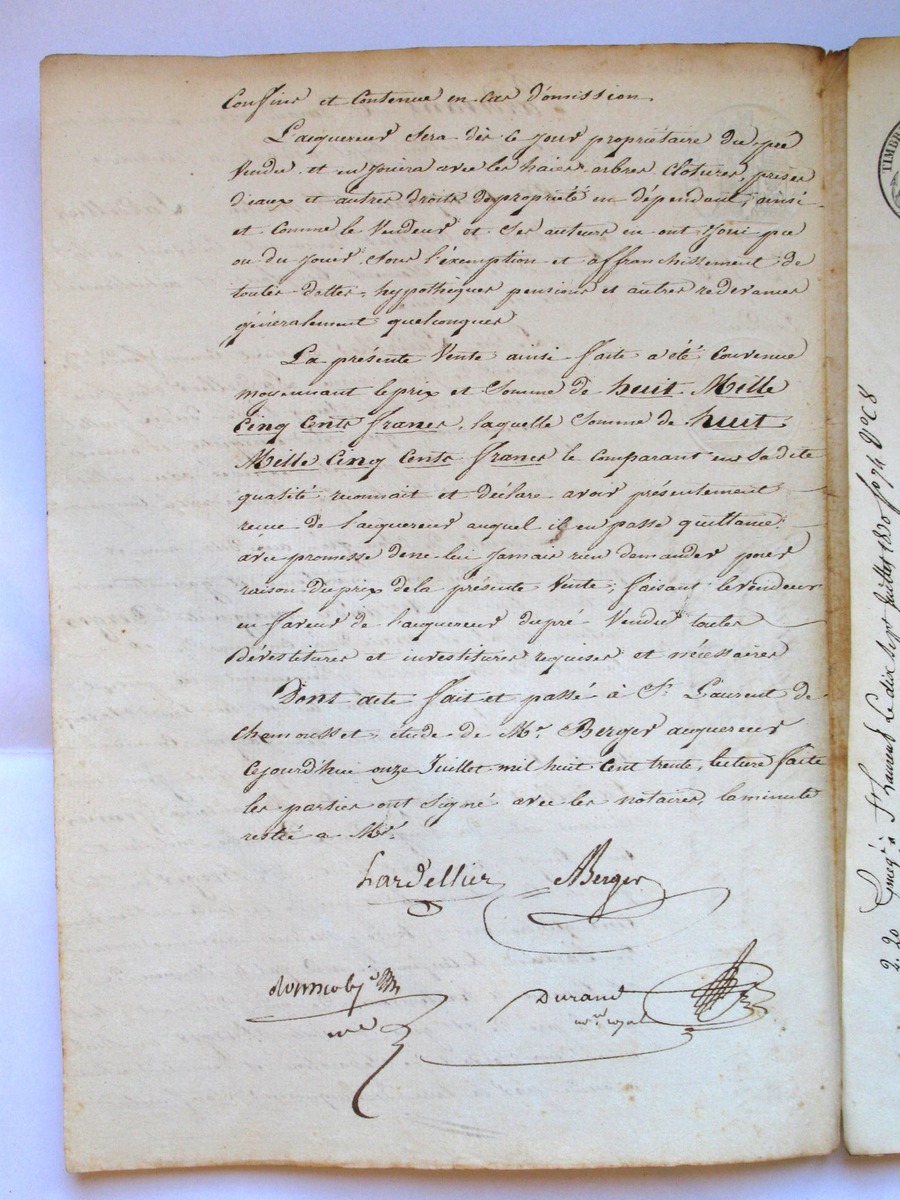 Confins et Contenue en cas d'omission.
L'acquereur sera dès ce jour propriétaire du pré
Vendu et en jouira avec les haies arbres Clotures, prises
d'eaux et autres droits de propriété en dépendant, ainsi
et Comme le Vendeur et Ses auteurs en ont joui pu
ou du jouir, Sous l'exemption et affranchissement de
toutes dettes, hypothèques pensions et autres redevances
généralement quelconques
La présente Vente ainsi faite a été Convenue
moyennant le prix et Somme de huit Mille
Cinq Cents francs, laquelle Somme de huit
Mille Cinq Cents francs le Comparant en Sa dite
qualité reconnait et déclare avoir présentement
reçue de l'acquereur auquel il en passe quittance
avec promesse de ne lui jamais rien demander pour
raison du prix de la présente Vente, faisant le vendeur
en faveur de l'acquereur du pré Vendu toutes
Dévestitures et investitures requises et nécessaires
Dont acte fait et passé à St Laurent de
Chamousset, étude de Me Berger acquereur
Cejourdhui onze Juillet mil huit Cent trente, lecture faite
les parties ont Signé avec les notaires, la minute
restée a Me
hardellier ABerger
Durand
nre royal
nre
TIMBR
St Laurent Le dix Sept Juillet 1830 fo 74 Vo C 8
2,20